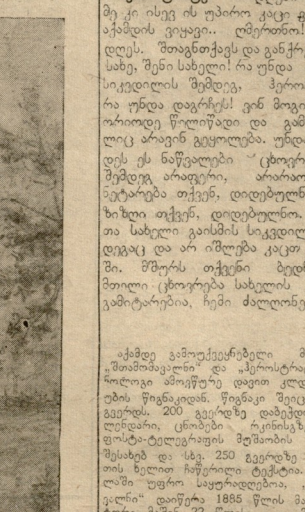 მე კი ისევ ის უპირო კაცი
აქამდის ვიყავი.. ღმერთნო!
დღეს. შთაგნთქავს და განქრ
სახე, შენი სახელი! რა უნდა
სიკვდილის შემდეგ, ჰერო
რა უნდა დაგრჩეს! ვინ მოგი
ორიოდე წელიწადი და გამ
ლიც არავინ გეყოლება. უნდა
დეს ეს ნაწვალები ცხოვრ
შემდეგ არაფერი, არარაო
ნეტარება თქვენ, დიდებულნ
ზიზღი თქვენ, დიდებულნო.
თა სახელი გაისმის სიკვდილ
დეგაც და არ იშლება კაცთ
ში. მშურს თქვენი ბედი
მთილი ცხოვრება სახელის
გამიტარებია, ჩემი ძალღონე
აქამდე გამოუქვეყნებელი
„შთამომავალნი“ და „ჰეროსტრა
ჩოლოგი ამოვწერე დავით კლდ
უბის წიგნაკიდან. წიგნაკი შეიც
გვერდს. 200 გვერდზე დაბეჭდი
ლენდარი, ცნობები რკინისგზ
ფოსტა-ტელეგრაფის მუშაობის
შესახებ და სხვ. 250 გვერდზე
თის ხელით ჩაწერილი ტექსტია.
ლაში უფრო საყურადღებოა,
ვალნი“ დაიწერა 1885 წლის მა